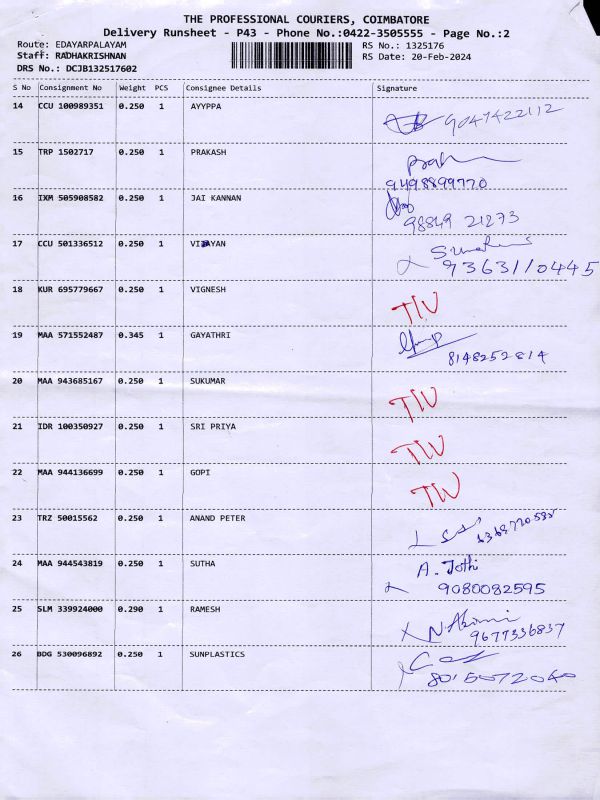 THE PROFESSIONAL COURIERS, COIMBATORE
Delivery Runsheet - P43 - Phone No.:0422-3505555 - Page No.:2
Route: EDAYARPALAYAM RS No.: 1325176
Staff: RADHAKRISHNAN RS Date: 20-Feb-2024
DRS No.: DCJB132517602
S No Consignment No Weight PCS Consignee Details Signature
14 CCU 100989351 0.250 1 AYYPPA
9047422112
15 TRP 1502717 0.250 1 PRAKASH
9498899770
16 IXM 505908582 0.250 1 JAI KANNAN
98849 21273
17 CCU 501336512 0.250 1 VIJAYAN
9363110445
18 KUR 695779667 0.250 1 VIGNESH
TIV
19 MAA 571552487 0.345 1 GAYATHRI
8148252814
20 MAA 943685167 0.250 1 SUKUMAR
TIV
21 IDR 100350927 0.250 1 SRI PRIYA
TIV
22 MAA 944136699 0.250 1 GOPI
TIV
23 TRZ 50015562 0.250 1 ANAND PETER
24 MAA 944543819 0.250 1 SUTHA A. Jothi
9080082595
25 SLM 339924000 0.290 1 RAMESH
9677336837
26 BDG 530096892 0.250 1 SUNPLASTICS
8015072040